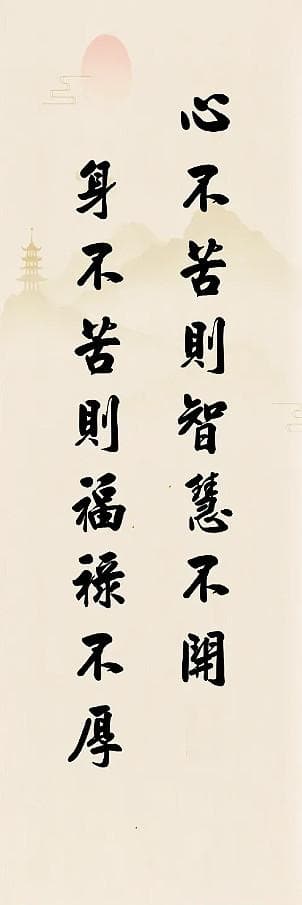 心不苦則智慧不開
身不苦則福祿不厚